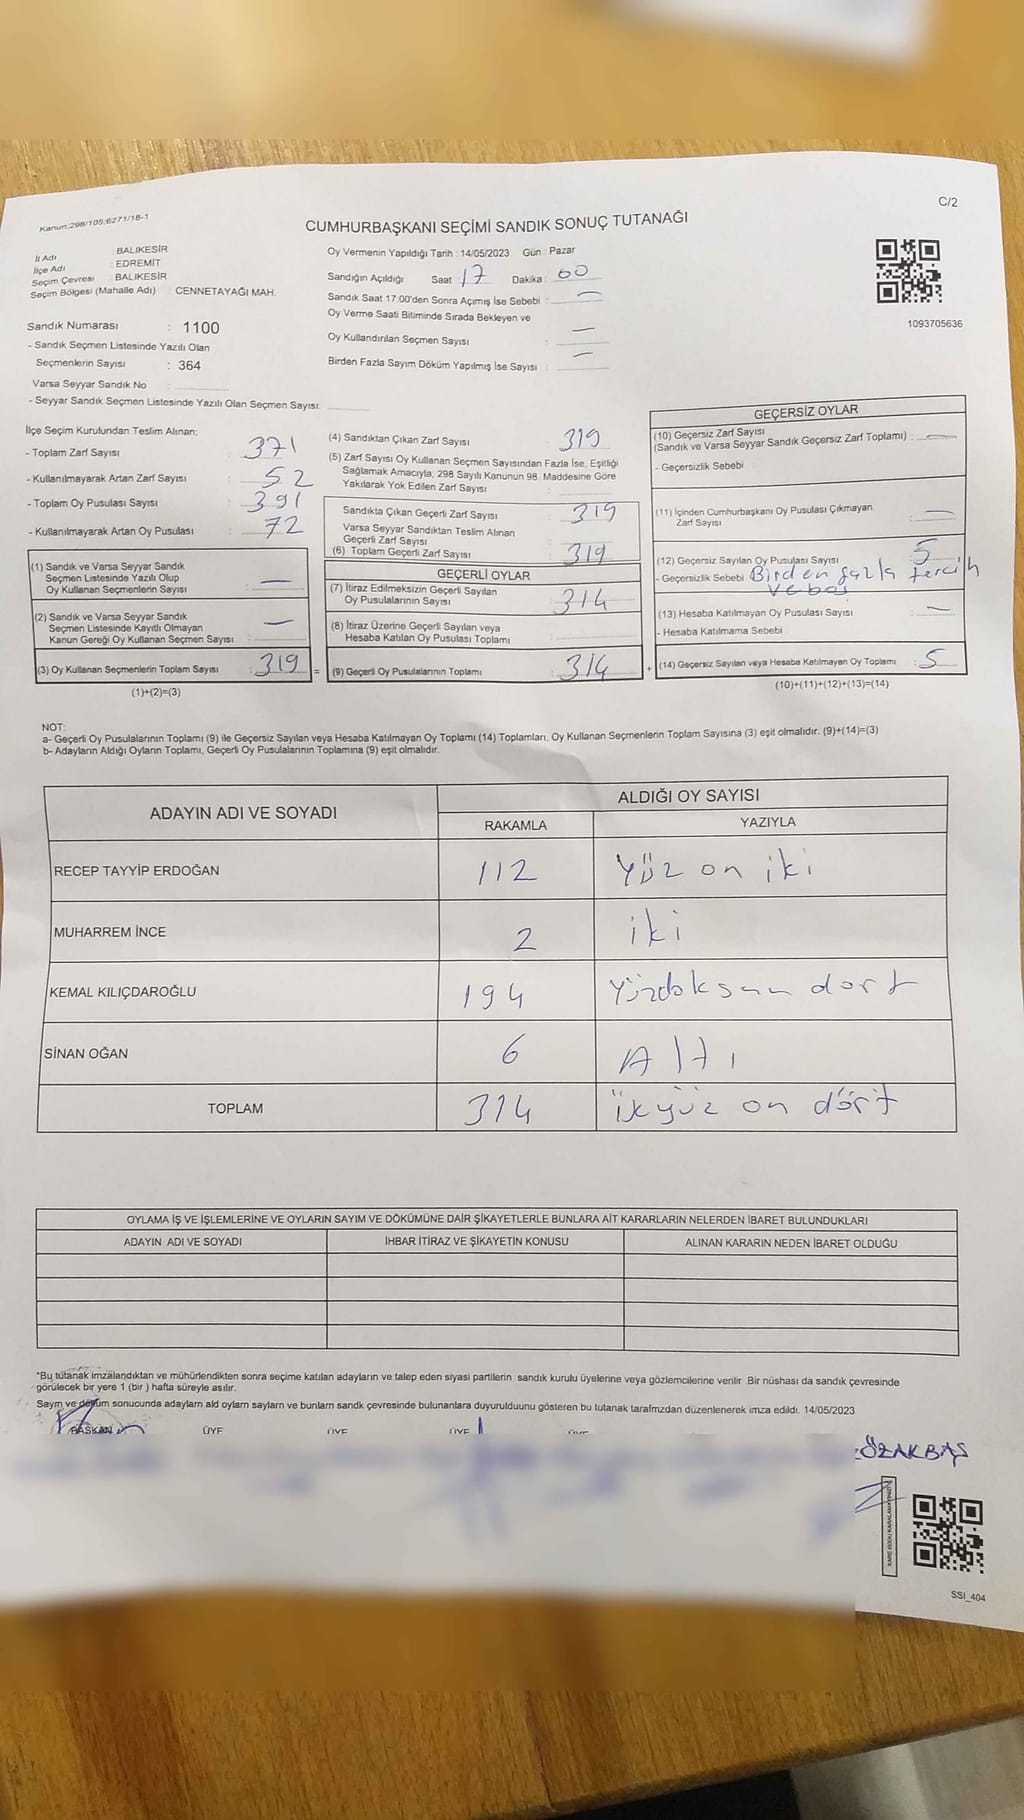 Kanun:298/105;6271/18-1
C/2
CUMHURBAŞKANI SEÇİMİ SANDIK SONUÇ TUTANAĞI
İl Adı : BALIKESİR
İlçe Adı : EDREMİT
Seçim Çevresi : BALIKESİR
Seçim Bölgesi (Mahalle Adı) : CENNETAYAĞI MAH.
Sandık Numarası : 1100
- Sandık Seçmen Listesinde Yazılı Olan
Seçmenlerin Sayısı : 364
Varsa Seyyar Sandık No :
- Seyyar Sandık Seçmen Listesinde Yazılı Olan Seçmen Sayısı:
Oy Vermenin Yapıldığı Tarih : 14/05/2023 Gün : Pazar
Sandığın Açıldığı Saat : 17 Dakika : 00
Sandık Saat 17:00'den Sonra Açımış İse Sebebi : —
Oy Verme Saati Bitiminde Sırada Bekleyen ve
Oy Kullandırılan Seçmen Sayısı : —
Birden Fazla Sayım Döküm Yapılmış İse Sayısı : —
1093705636
İlçe Seçim Kurulundan Teslim Alınan;
- Toplam Zarf Sayısı : 371
- Kullanılmayarak Artan Zarf Sayısı : 52
- Toplam Oy Pusulası Sayısı : 391
- Kullanılmayarak Artan Oy Pusulası : 72
(1) Sandık ve Varsa Seyyar Sandık
Seçmen Listesinde Yazılı Olup
Oy Kullanan Seçmenlerin Sayısı : —
(2) Sandık ve Varsa Seyyar Sandık
Seçmen Listesinde Kayıtlı Olmayan
Kanun Gereği Oy Kullanan Seçmen Sayısı : —
(3) Oy Kullanan Seçmenlerin Toplam Sayısı : 319 =
(1)+(2)=(3)
(4) Sandıktan Çıkan Zarf Sayısı : 319
(5) Zarf Sayısı Oy Kullanan Seçmen Sayısından Fazla İse, Eşitliği
Sağlamak Amacıyla; 298 Sayılı Kanunun 98. Maddesine Göre
Yakılarak Yok Edilen Zarf Sayısı :
Sandıkta Çıkan Geçerli Zarf Sayısı : 319
Varsa Seyyar Sandıktan Teslim Alınan
Geçerli Zarf Sayısı :
(6) Toplam Geçerli Zarf Sayısı : 319
GEÇERLİ OYLAR
(7) İtiraz Edilmeksizin Geçerli Sayılan
Oy Pusulalarının Sayısı : 314
(8) İtiraz Üzerine Geçerli Sayılan veya
Hesaba Katılan Oy Pusulası Toplamı :
(9) Geçerli Oy Pusulalarının Toplamı : 314 +
GEÇERSİZ OYLAR
(10) Geçersiz Zarf Sayısı
(Sandık ve Varsa Seyyar Sandık Geçersiz Zarf Toplamı) : —
- Geçersizlik Sebebi :
(11) İçinden Cumhurbaşkanı Oy Pusulası Çıkmayan
Zarf Sayısı : —
(12) Geçersiz Sayılan Oy Pusulası Sayısı : 5
- Geçersizlik Sebebi Birden fazla tercih
Veboş
(13) Hesaba Katılmayan Oy Pusulası Sayısı : —
- Hesaba Katılmama Sebebi :
(14) Geçersiz Sayılan veya Hesaba Katılmayan Oy Toplamı : 5
(10)+(11)+(12)+(13)=(14)
NOT:
a- Geçerli Oy Pusulalarının Toplamı (9) ile Geçersiz Sayılan veya Hesaba Katılmayan Oy Toplamı (14) Toplamları, Oy Kullanan Seçmenlerin Toplam Sayısına (3) eşit olmalıdır. (9)+(14)=(3)
b- Adayların Aldığı Oyların Toplamı, Geçerli Oy Pusulalarının Toplamına (9) eşit olmalıdır.
ADAYIN ADI VE SOYADI ALDIĞI OY SAYISI
RAKAMLA YAZIYLA
RECEP TAYYİP ERDOĞAN 112 Yüz on iki
MUHARREM İNCE 2 iki
KEMAL KILIÇDAROĞLU 194 Yüzdoksan dort
SİNAN OĞAN 6 Altı
TOPLAM 314 ükyüz on dört
OYLAMA İŞ VE İŞLEMLERİNE VE OYLARIN SAYIM VE DÖKÜMÜNE DAİR ŞİKAYETLERLE BUNLARA AİT KARARLARIN NELERDEN İBARET BULUNDUKLARI
ADAYIN ADI VE SOYADI İHBAR İTİRAZ VE ŞİKAYETİN KONUSU ALINAN KARARIN NEDEN İBARET OLDUĞU
"Bu tutanak imzalandıktan ve mühürlendikten sonra seçime katılan adayların ve talep eden siyasi partilerin sandık kurulu üyelerine veya gözlemcilerine verilir .Bir nüshası da sandık çevresinde
görülecek bir yere 1 (bir ) hafta süreyle asılır.
Saym ve döküm sonucunda adaylarn ald oylarn saylarn ve bunlarn sandk çevresinde bulunanlara duyurulduunu gösteren bu tutanak tarafmzdan düzenlenerek imza edildi. 14/05/2023
BAŞKAN ÜYE ÜYE ÜYE ÜYE
ÖZAKBAŞ
SSI_404